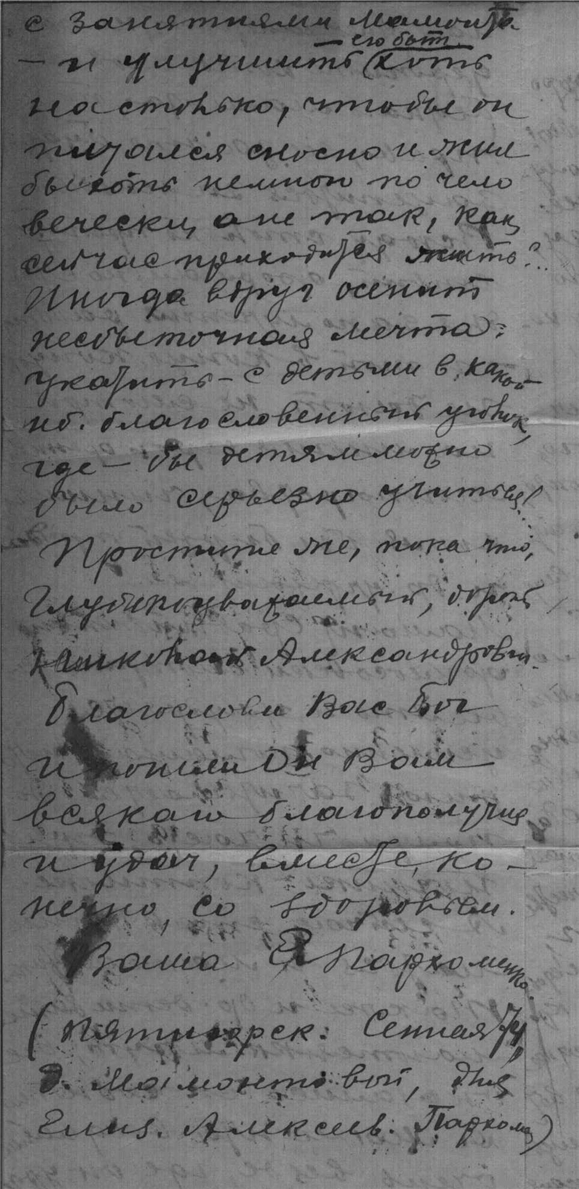 с занятиями Мамонта
его быт
— и улучшить хоть
настолько, чтобы он
питался сносно и жил
бы хоть немного по чело
вечески, а не так, как
сейчас приходится жить?..
Иногда вдруг осенит
несбыточная мечта:
укатить – с детьми в какой-
нб. благословенный уголок,
где – бы детям можно
было серьезно учиться!
Простите же, пока что,
Глубокоуважаемый, дорог
Николай Александрович.
Благослови Вас Бог
и пошли Он Вам
всякаго благополучия
и удач, вместе, ко-
нечно, со здоровьем.
Ваша Е Пархоменко
(Пятигорск. Сенная 74,
д. Мамонтовой, для
Елиз. Алексеев. Пархомен)